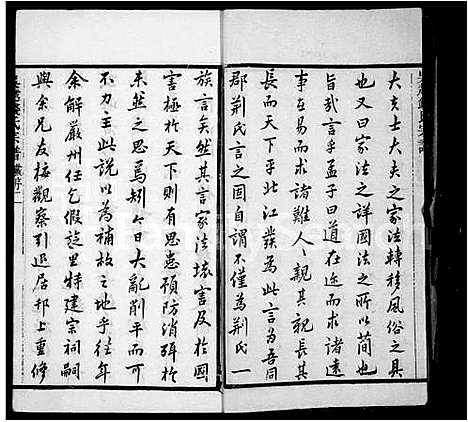 大夫士大夫之家法轉移風俗之具
也又曰家法之詳國法之所以簡也
旨哉言乎孟子曰道在迩而求諸遠
事在易而求諸難人人親其親長其
長而天下平北江發為此言為吾同
郡荊氏言固自謂不僅為荊氏一
族言矣然言家法壞害及於國
害極於天下則有思患預防消弭於
未然之思焉矧今日大亂削平而可
不力主此說以為補救之地乎往年
余解嚴州任乞假旋里特建宗祠嗣
與余兄友梅觀察引退居邗上重修
氏宗譜